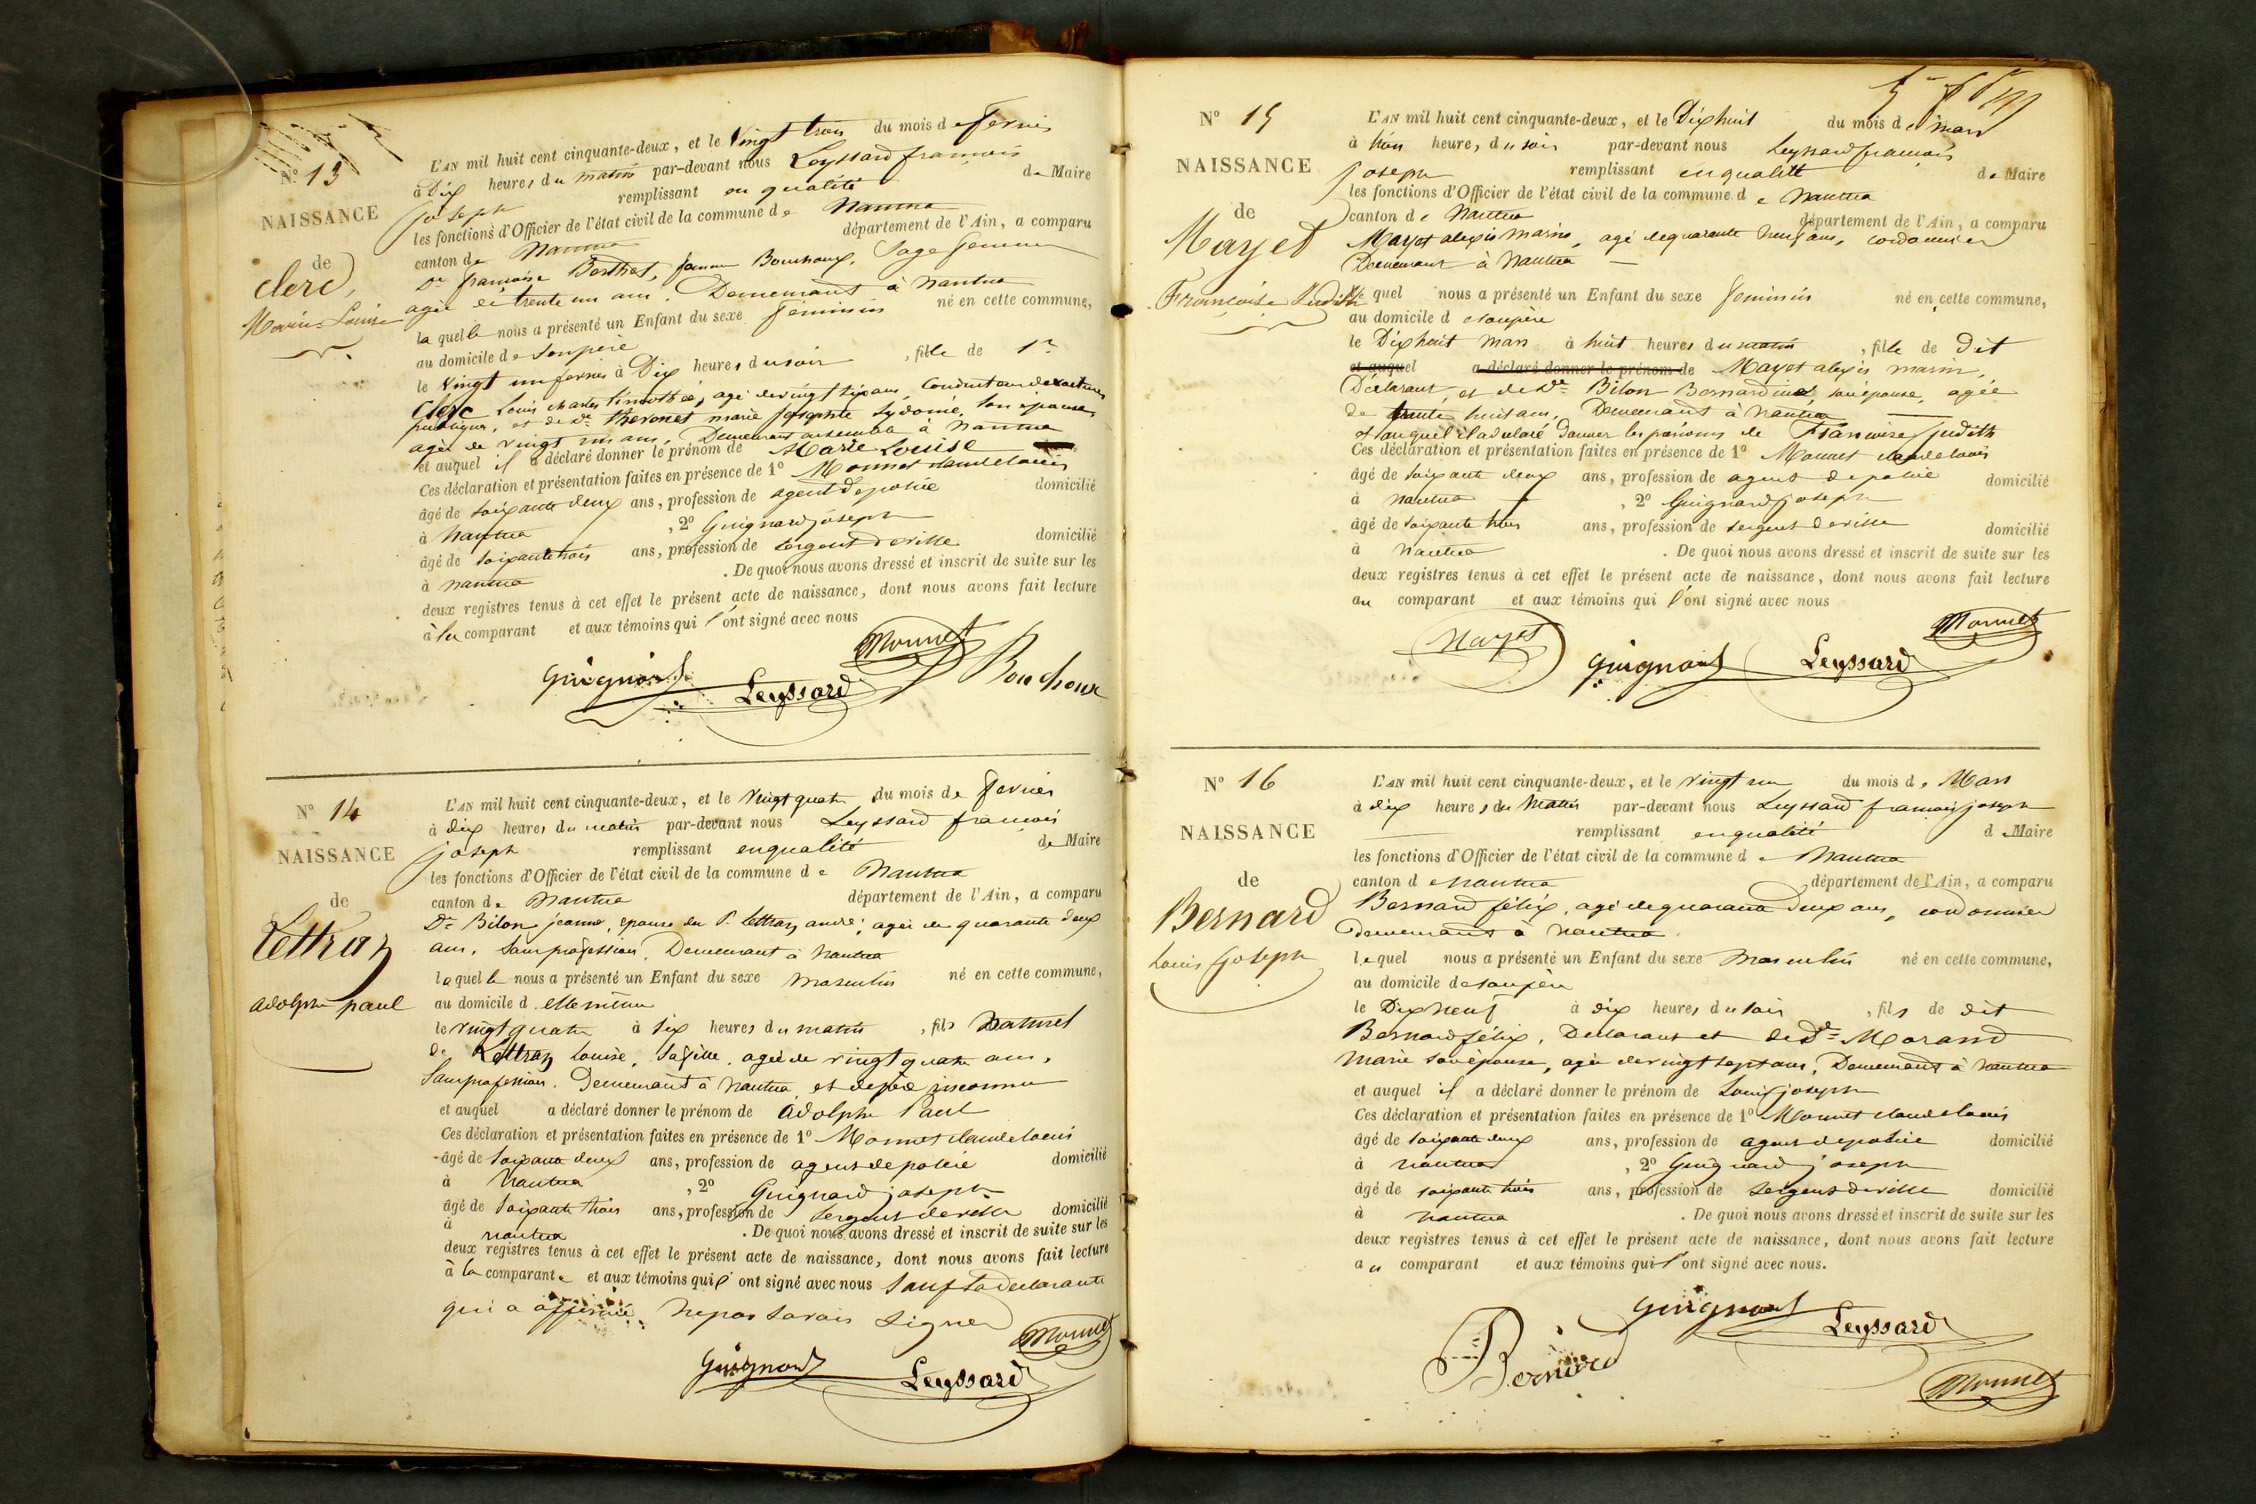 N° 13
NAISSANCE
de
Clerc,
Marie-Louise
L'AN mil huit cent cinquante-deux, et le Vingt trois du mois de fevrier
à Dix heures du matin par-devant nous Leyssard françois
joseph remplissant en qualité de Maire
les fonctions d'Officier de l'état civil de la commune de Nantua
canton de Nantua département de l'Ain, a comparu
De françoise Berthet, femme Bouchoux, Sage femme
agée de trente un ans. Demeurant à Nantua
laquelle nous a présenté un Enfant du sexe feminin né en cette commune,
au domicile de son père
le Vingt un fevrier à Dix heures du soir, fille de Sr
Clerc Louis charles timothée, agé de vingt six ans, Conducteur de voitures
publiques, et de De thevenet marie josephte Sydonie, son épouse
agée de vingt un ans, Demeurant ensemble à Nantua
et auquel il a déclaré donner le prénom de Marie Louise
Ces déclaration et présentation faites en présence de 1° Monnet claude louis
âgé de soixante deux ans, profession de agent de police domicilié
à Nantua, 2° Guignard joseph
âgé de soixante trois ans, profession de sergent de ville domicilié
à nantua. De quoi nous avons dressé et inscrit de suite sur les
deux registres tenus à cet effet le présent acte de naissance, dont nous avons fait lecture
à la comparant et aux témoins qui l'ont signé avec nous
Monnet
Guignard Leyssard Bouchoux
N° 14
NAISSANCE
de
Lettraz
adolphe paul
L'AN mil huit cent cinquante-deux, et le vingt quatre du mois de fevrier
à dix heures du matin par-devant nous Leyssard francois
joseph remplissant en qualité de Maire
les fonctions d'Officier de l'état civil de la commune de Nantua
canton de Nantua département de l'Ain, a comparu
De Bilon jeanne, epouse du Sr lettraz andré, agée de quarante deux
ans, Sans profession, Demeurant à Nantua
laquelle nous a présenté un Enfant du sexe masculin né en cette commune,
au domicile d elle même
le vingt quatre à six heures du matin, fils naturel
de Lettraz Louise, sa fille, agée de vingt quatre ans,
Sans profession. Demeurant à Nantua, et de père inconnu
et auquel a déclaré donner le prénom de Adolphe Paul
Ces déclaration et présentation faites en présence de 1° Monnet claude louis
âgé de soixante deux ans, profession de agent de police domicilié
à Nantua, 2° Guignard joseph
âgé de soixante trois ans, profession de sergent de ville domicilié
à nantua. De quoi nous avons dressé et inscrit de suite sur les
deux registres tenus à cet effet le présent acte de naissance, dont nous avons fait lecture
à la comparante et aux témoins qui l'ont signé avec nous sauf la déclarante
qui a affirmé ne pas savoir signer
Monnet
Guignard Leyssard
N° 15
NAISSANCE
de
Mayet
Françoise Judith
L'AN mil huit cent cinquante-deux, et le Dix huit du mois de mars
à trois heure, du soir par-devant nous Leyssard francois
joseph remplissant en qualité de Maire
les fonctions d'Officier de l'état civil de la commune de Nantua
canton de Nantua département de l'Ain, a comparu
Mayet alexis marin, agé de quarante neuf ans, cordonnier
Demeurant à Nantua
lequel nous a présenté un Enfant du sexe feminin né en cette commune,
au domicile de son père
le Dix huit mars à huit heures du matin, fille de dit
et auquel a déclaré donner le prénom de Mayet alexis marin,
Déclarant, et de De Bilon Bernardine, son épouse, agée
de trente huit ans, Demeurant à Nantua
et auquel il a déclaré donner les prénoms de Francoise judith
Ces déclaration et présentation faites en présence de 1° Monnet claude louis
âgé de soixante deux ans, profession de agent de police domicilié
à nantua, 2° Guignard joseph
âgé de soixante trois ans, profession de sergent de ville domicilié
à Nantua. De quoi nous avons dressé et inscrit de suite sur les
deux registres tenus à cet effet le présent acte de naissance, dont nous avons fait lecture
au comparant et aux témoins qui l'ont signé avec nous
Monnet
Mayet Guignard Leyssard
N° 16
NAISSANCE
de
Bernard
Louis Joseph
L'AN mil huit cent cinquante-deux, et le vingt un du mois de Mars
à dix heures du matin par-devant nous Leyssard francois joseph
remplissant en qualité de Maire
les fonctions d'Officier de l'état civil de la commune de Nantua
canton de nantua département de l'Ain, a comparu
Bernard félix, agé de quarante deux ans, cordonnier
demeurant à Nantua
lequel nous a présenté un Enfant du sexe masculin né en cette commune,
au domicile de son père
le Dix neuf à dix heures du soir, fils de dit
Bernard félix, Déclarant et de De Morand
Marie son épouse, agée de vingt sept ans, Demeurant à Nantua
et auquel il a déclaré donner le prénom de Louis joseph
Ces déclaration et présentation faites en présence de 1° Monnet claude louis
âgé de soixante deux ans, profession de agent de police domicilié
à nantua, 2° Guignard joseph
âgé de soixante trois ans, profession de sergent de ville domicilié
à Nantua. De quoi nous avons dressé et inscrit de suite sur les
deux registres tenus à cet effet le présent acte de naissance, dont nous avons fait lecture
au comparant et aux témoins qui l'ont signé avec nous.
Guignard
Bernard Leyssard
Monnet